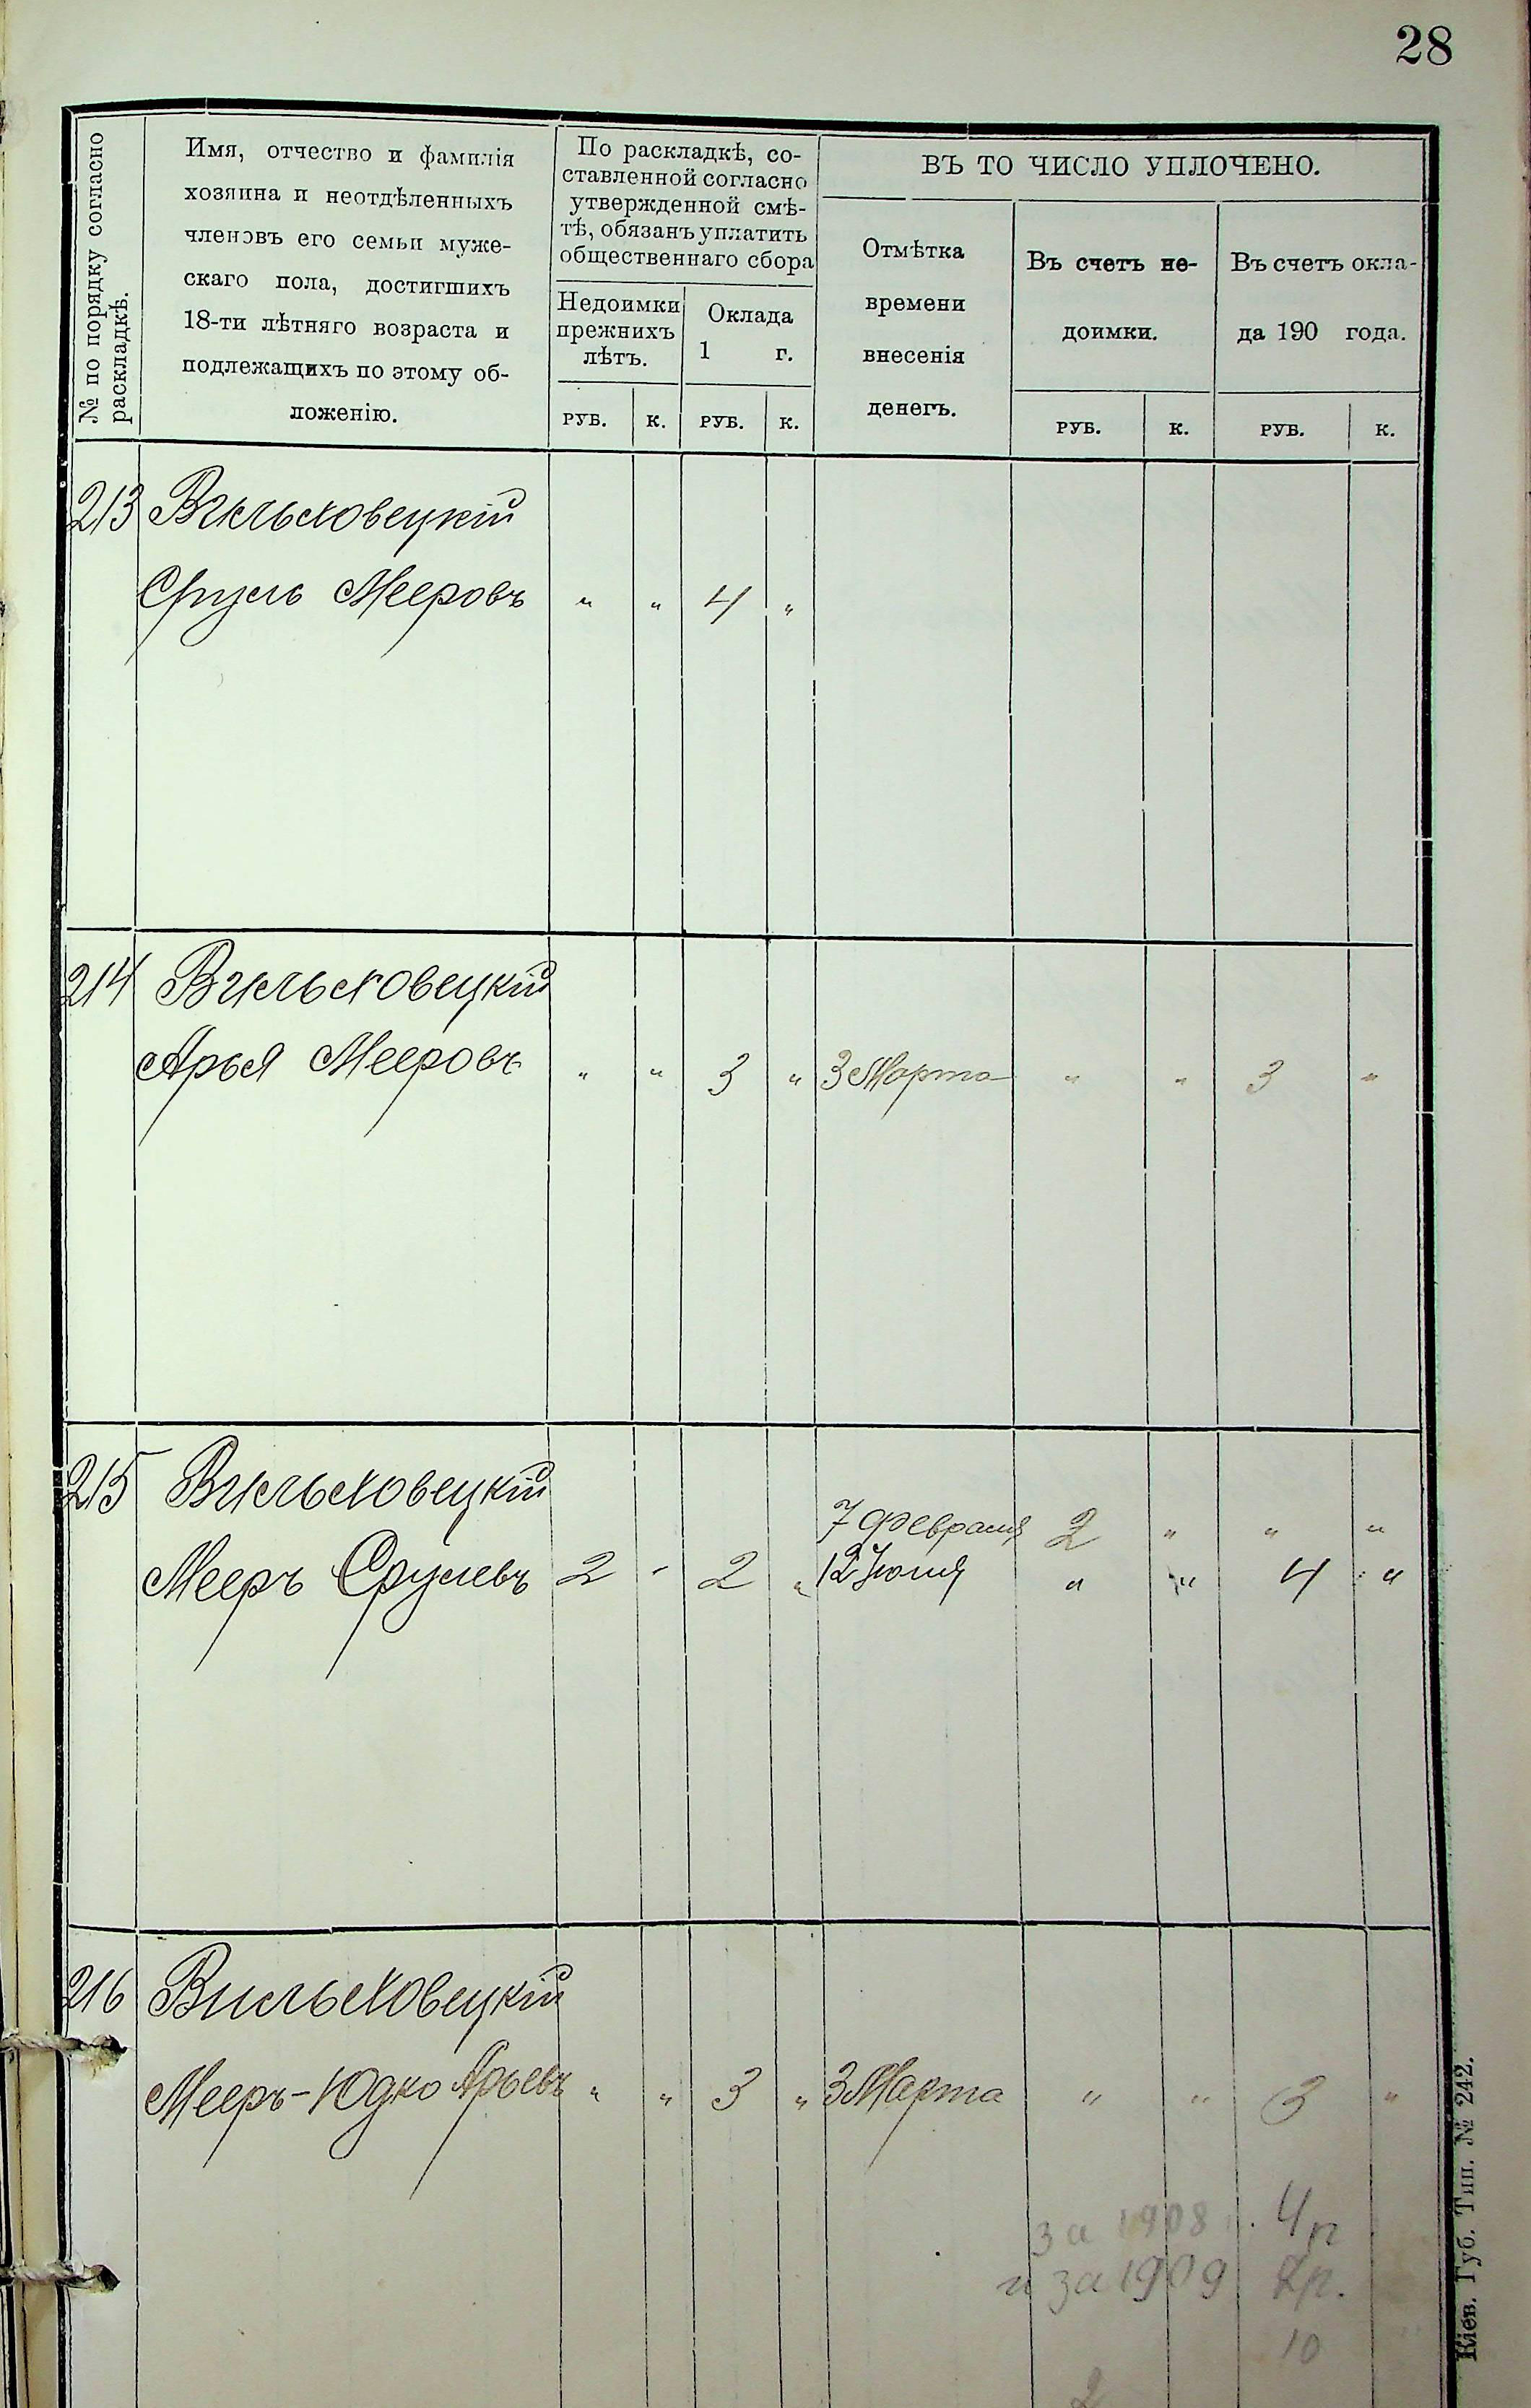 28
№ по порядку согласно
раскладкѣ.
Имя, отчество и фамилія
хозяина и неотдѣленныхъ
членовъ его семьи муже-
скаго пола, достигшихъ
18-ти лѣтняго возраста и
подлежащихъ по этому об-
ложенію.
По раскладкѣ, со-
ставленной согласно
утвержденной смѣ-
тѣ, обязанъ уплатить
общественнаго сбора
Недоимки
прежнихъ
лѣтъ.
Оклада
1 г.
ВЪ ТО ЧИСЛО УПЛОЧЕНО.
Отмѣтка
времени
внесенія
денегъ.
Въ счетъ не-
доимки.
Въ счетъ окла-
да 190 года.
РУБ. К. РУБ. К. РУБ. К. РУБ. К.
213 Вильховецкій
Срулъ Мееровъ " " 4 "
214 Вильховецкій
Арья Мееровъ " " 3 " 3 Марта " " 3 "
215 Вильховецкій
7 Февраля 2 " " "
Мееръ Срулевъ 2 - 2 " 12 Іюня " " 4 "
216 Вильховецкій
Мееръ-Юдко Арьевъ " " 3 " 3 Марта " " 3 "
за 1908 г. 4 р
и за 1909 2 р.
10
2
Кіев. Губ. Тип. № 242.